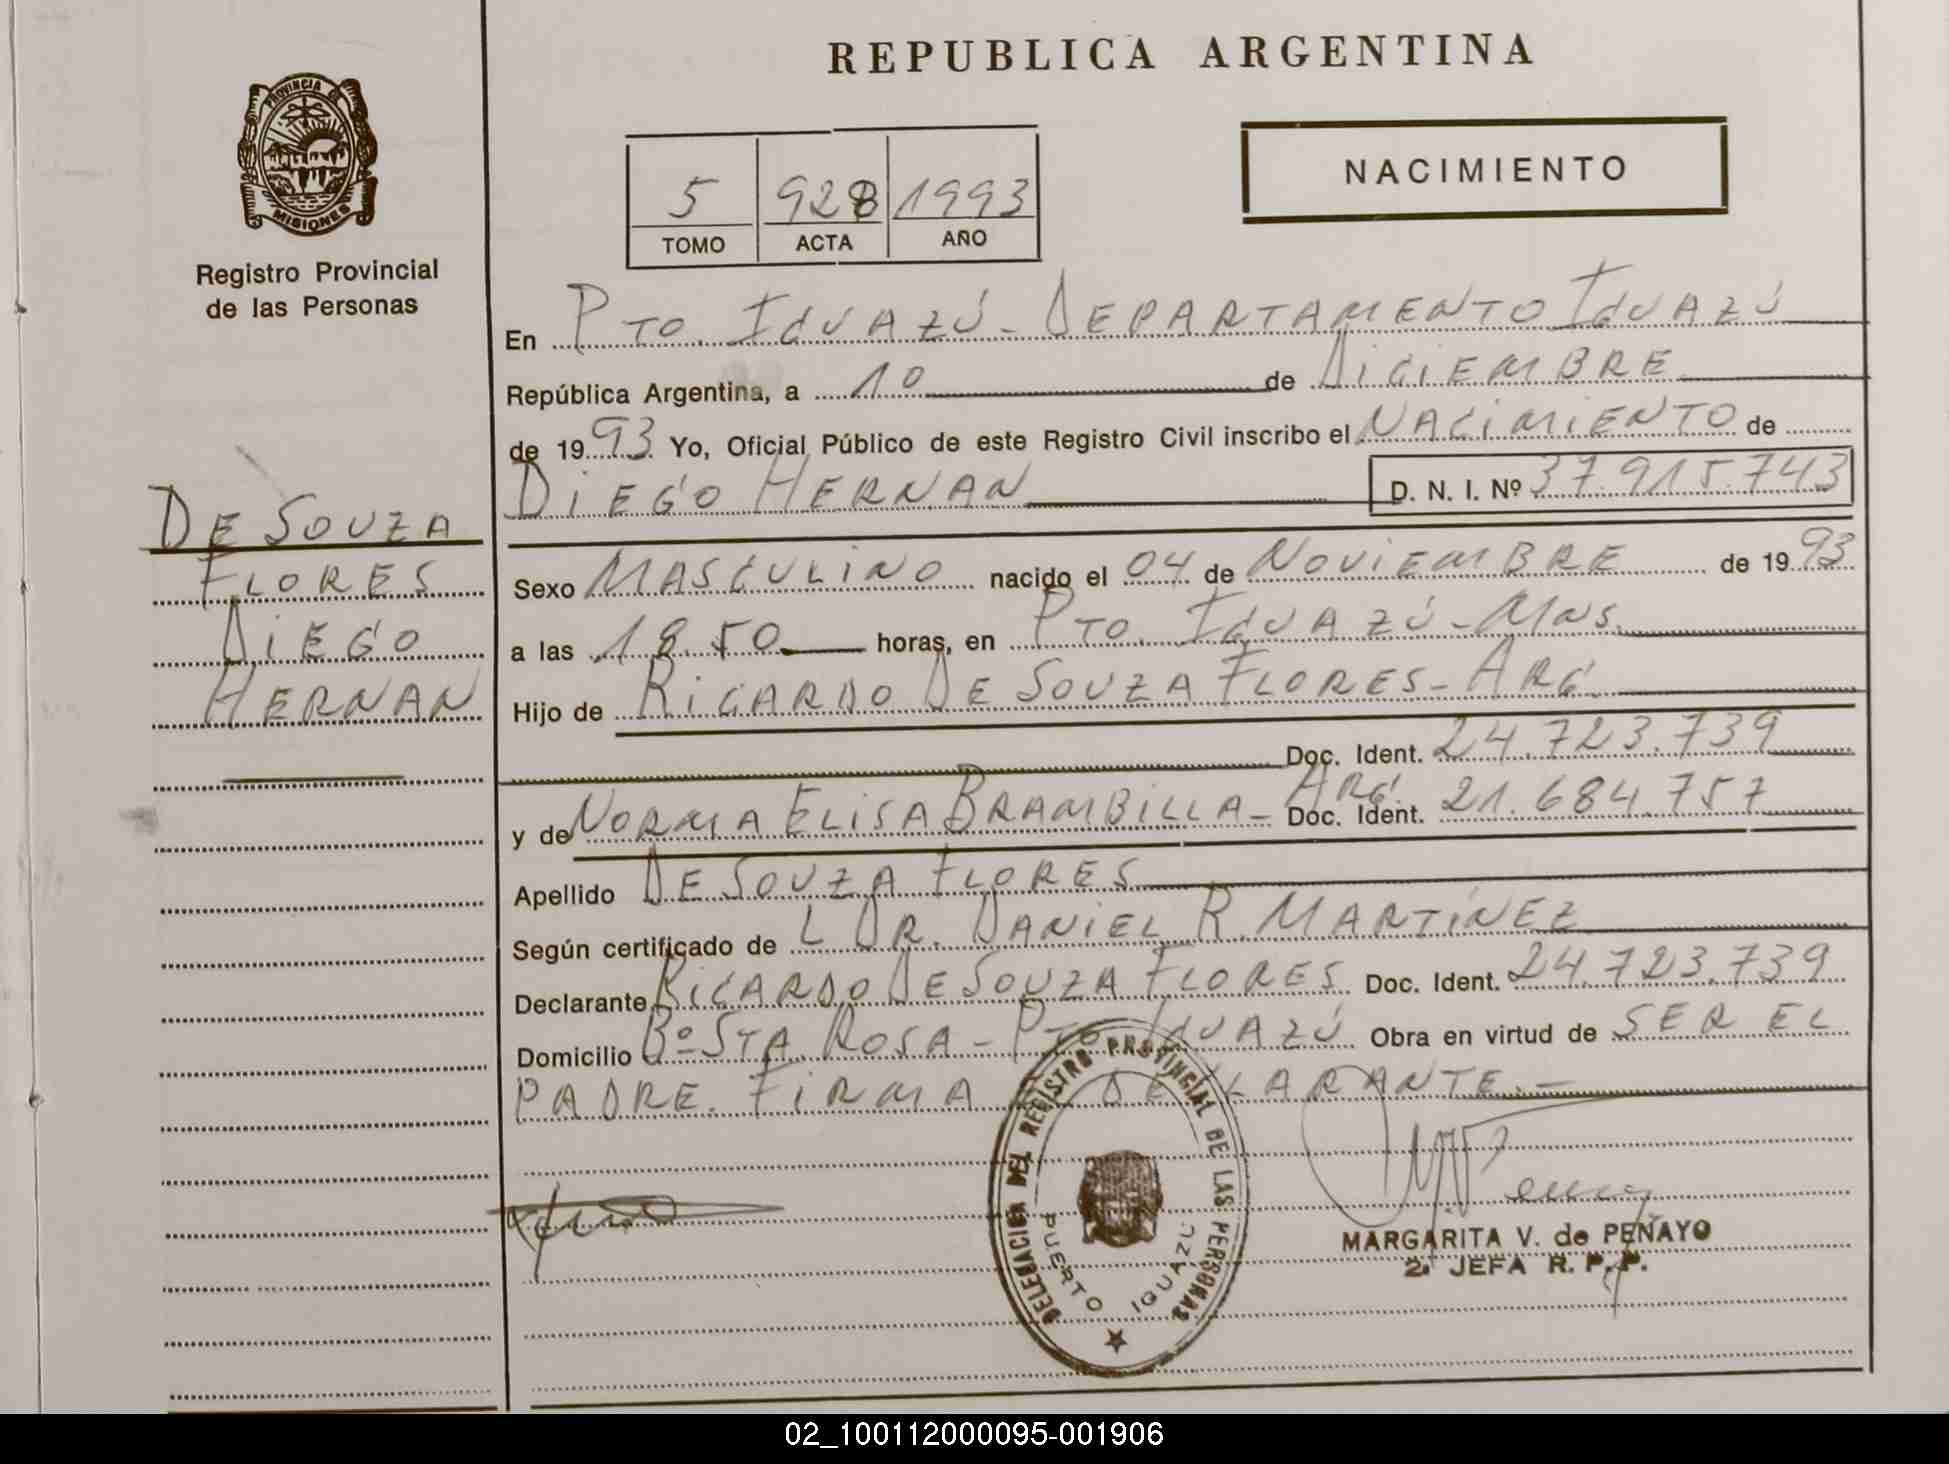 REPUBLICA ARGENTINA
PROVINCIA DE
MISIONES
Registro Provincial
de las Personas
5 928 1993
TOMO ACTA AÑO
NACIMIENTO
En PTO. IGUAZÚ - DEPARTAMENTO IGUAZÚ
República Argentina, a 10 de DICIEMBRE
de 1993 Yo, Oficial Público de este Registro Civil inscribo el NACIMIENTO de
DIEGO HERNAN D. N. I. Nº 37.915.743
DE SOUZA
FLORES
DIEGO
HERNAN
Sexo MASCULINO nacido el 04 de NOVIEMBRE de 1993
a las 18.50 horas, en PTO. IGUAZÚ - MNS.
Hijo de RICARDO DE SOUZA FLORES - ARG.
Doc. Ident. 24.723.739
y de NORMA ELISA BRAMBILLA - ARG. Doc. Ident. 21.684.757
Apellido DE SOUZA FLORES
Según certificado de L DR. DANIEL R. MARTÍNEZ
Declarante RICARDO DE SOUZA FLORES Doc. Ident. 24.723.739
Domicilio Bº STA. ROSA - PTO. IGUAZÚ Obra en virtud de SER EL
PADRE. FIRMA DECLARANTE. -
DELEGACION DEL REGISTRO PROVINCIAL DE LAS PERSONAS
PUERTO IGUAZU
MARGARITA V. de PENAYO
2ª JEFA R. P. P.
02_100112000095-001906